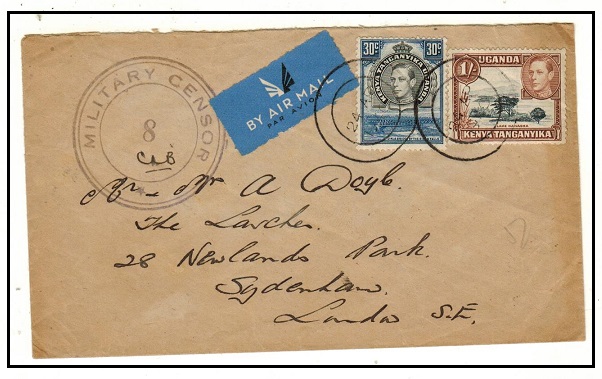 MILITARY CENSOR
8
CAB
BY AIR MAIL
PAR AVION
30c 30c
KENYA TANGANYIKA UGANDA
1/-
UGANDA
KENYA TANGANYIKA
Mr - Mrs A Doyle.
The Larches.
28 Newlands Park.
Sydenham.
London S.E.